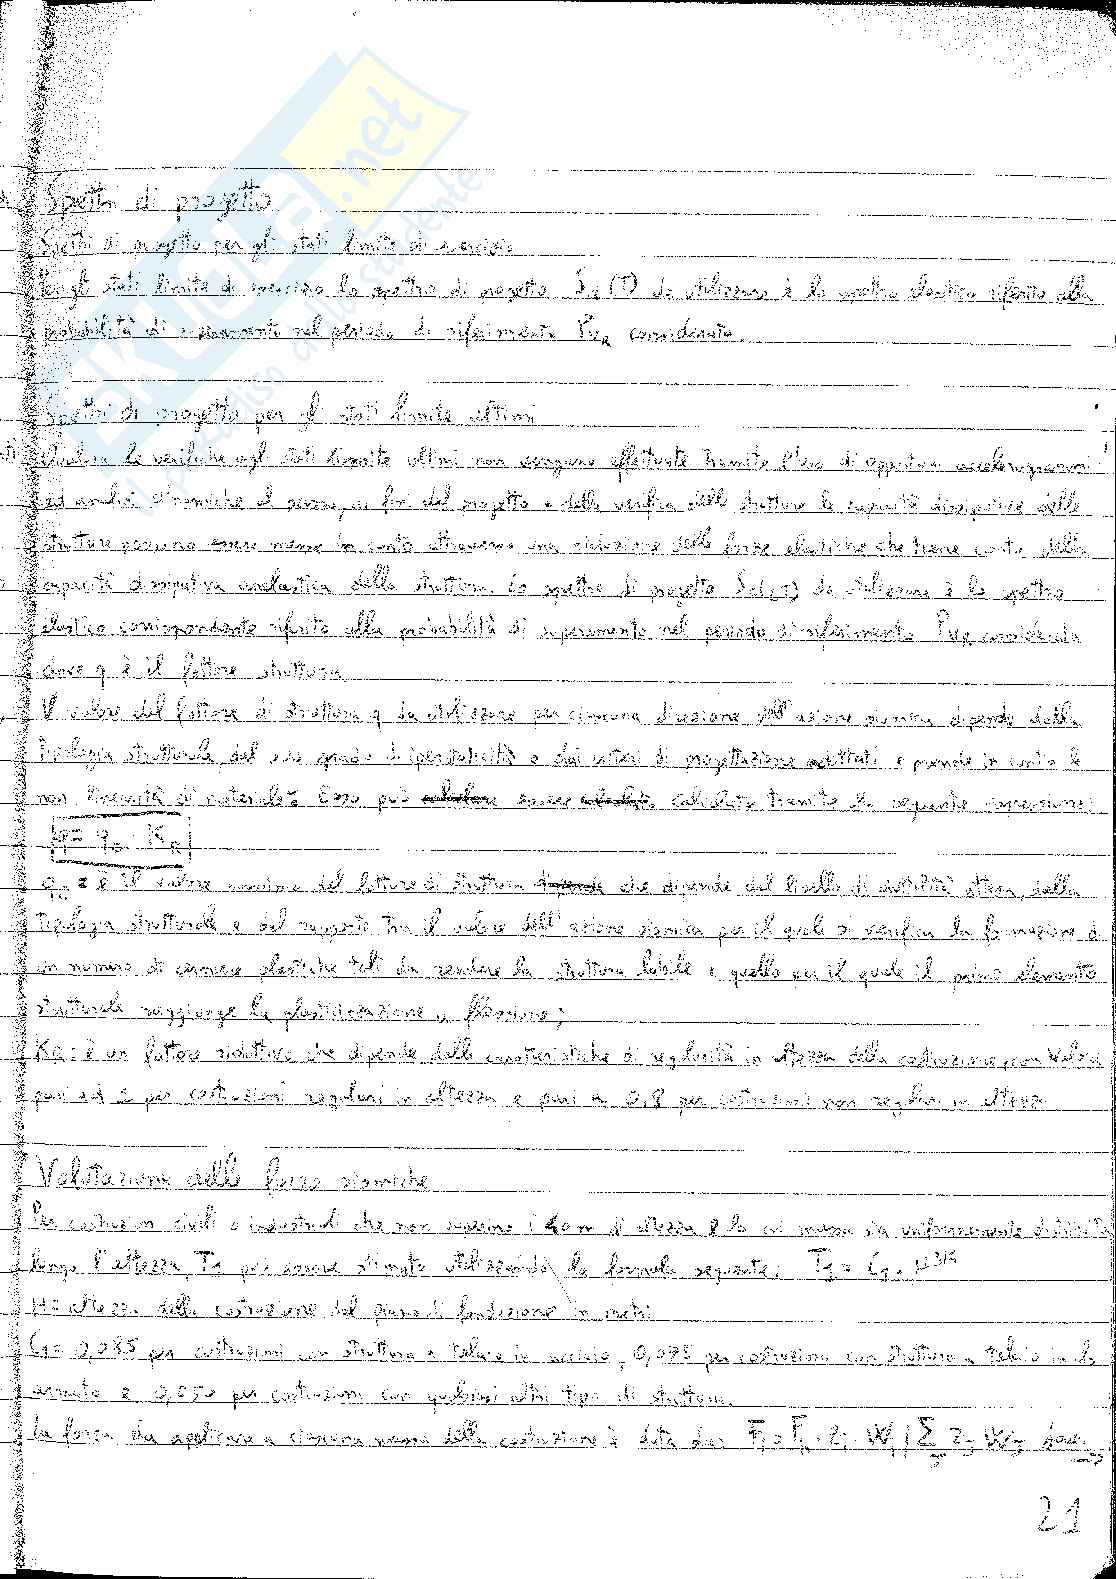 Skuola.net
il paradiso dello studente
Spettri di progetto
Spettri di progetto per gli stati limite di esercizio
Per gli stati limite di esercizio lo spettro di progetto Sd (T) da utilizzare è lo spettro elastico riferito alla
probabilità di superamento nel periodo di riferimento PVR considerato.
Spettri di progetto per gli stati limite ultimi
Qualora le verifiche agli stati limite ultimi non vengano effettuate tramite l'uso di opportuni accelerogrammi
ed analisi dinamiche al passo, ai fini del progetto o della verifica delle strutture le capacità dissipative delle
strutture possono essere messe in conto attraverso una riduzione delle forze elastiche che tiene conto della
capacità dissipativa anelastica della struttura. Lo spettro di progetto Sd(T) da utilizzare è lo spettro
elastico corrispondente riferito alla probabilità di superamento nel periodo di riferimento PVR considerato
dove q è il fattore struttura
Il valore del fattore di struttura q da utilizzare per ciascuna direzione dell'azione sismica dipende dalla
tipologia strutturale, dal suo grado di iperstaticità e dai criteri di progettazione adottati e prende in conto le
non linearità di materiale. Esso può essere calcolato tramite la seguente espressione:
q = q0 · KR
q0 = è il valore massimo del fattore di struttura che dipende dal livello di duttilità attesa, dalla
tipologia strutturale e dal rapporto tra il valore dell'azione sismica per il quale si verifica la formazione di
un numero di cerniere plastiche tali da rendere la struttura labile e quello per il quale il primo elemento
strutturale raggiunge la plasticizzazione a flessione;
KR: è un fattore riduttivo che dipende dalle caratteristiche di regolarità in altezza della costruzione, con valori
pari ad 1 per costruzioni regolari in altezza e pari a 0,8 per costruzioni non regolari in altezza
Valutazione delle forze sismiche
Per costruzioni civili o industriali che non superino i 40 m di altezza e la cui massa sia uniformemente distribuita
lungo l'altezza, T1 può essere stimato utilizzando la formula seguente: T1 = C1 · H3/4
H = altezza della costruzione dal piano di fondazione in metri
C1 = 0,085 per costruzioni con struttura a telaio in acciaio, 0,075 per costruzioni con struttura a telaio in cls
armato e 0,050 per costruzioni con qualsiasi altro tipo di struttura.
La forza da applicare a ciascuna massa della costruzione è data da: Fi = Fh · zi · Wi / Σj zj Wj dove:
21